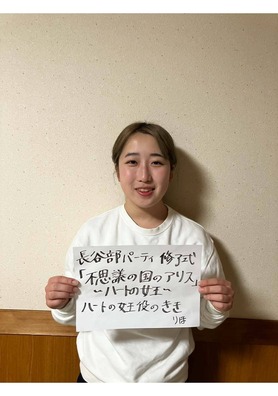 長谷部パーティ 修了式
「不思議の国のアリス」
～ハートの女王～
ハートの女王役のきき
りほ